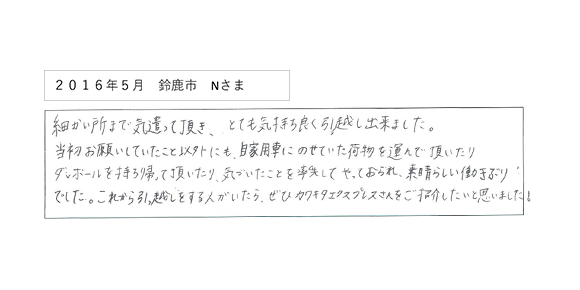 ２０１６年５月　鈴鹿市　Nさま
細かい所まで気遣って頂き、とても気持ち良く引越し出来ました。
当初お願いしていたこと以外にも、自家用車にのせていた荷物を運んで頂いたり
ダンボールを持ち帰って頂いたり、気づいたことを率先してやっておられ、素晴らしい働きぶり
でした。これから引越しをする人がいたら、ぜひカワキタエクスプレスさんをご紹介したいと思いました！